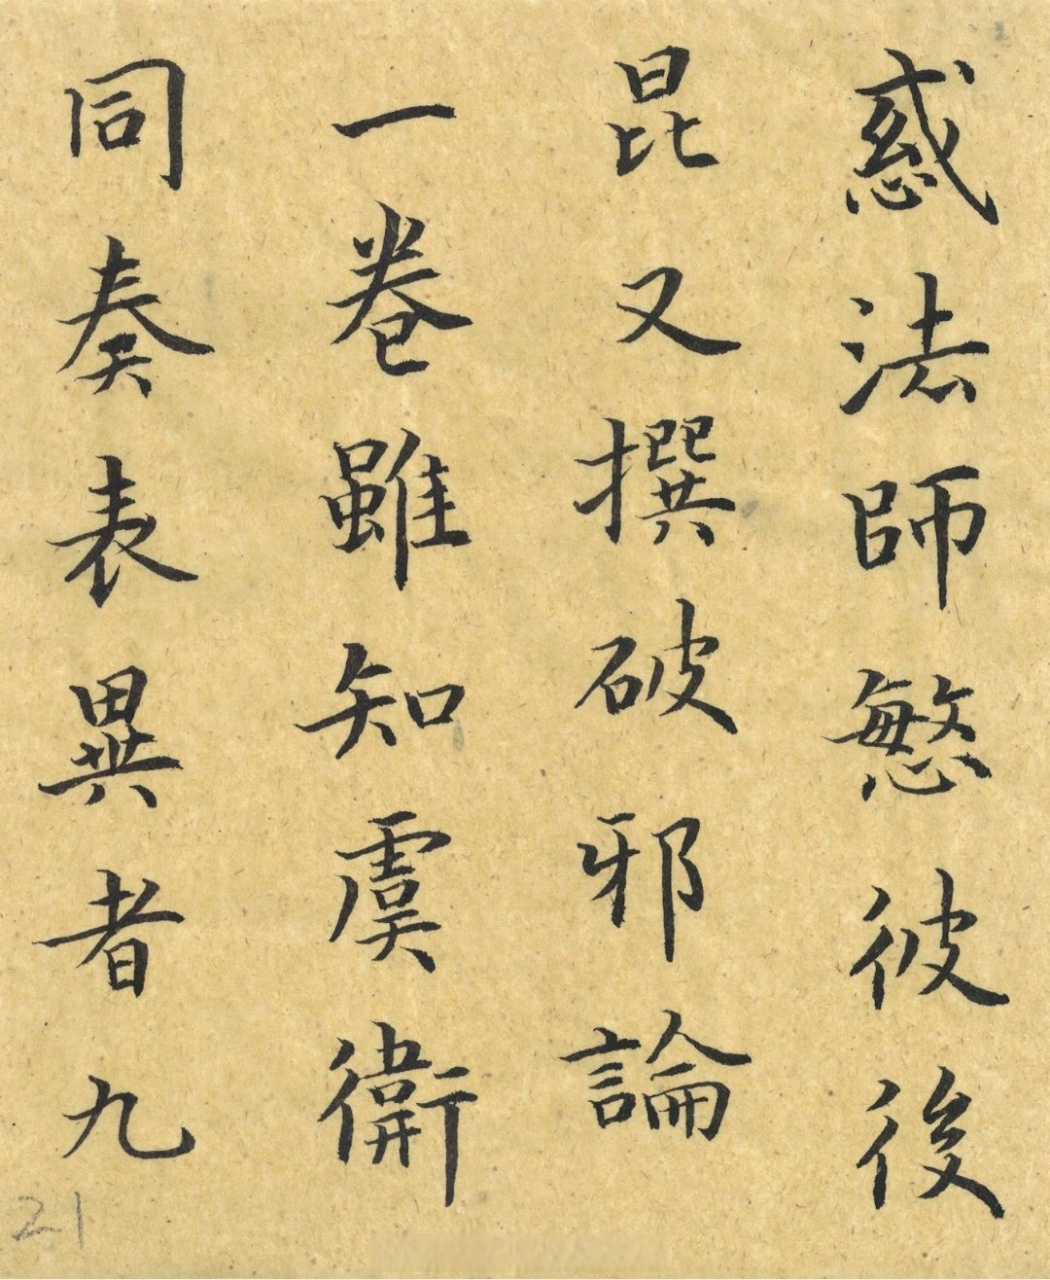 惑法師慜彼後
昆又撰破邪論
一卷雖知虞衛
同奏表異者九
21